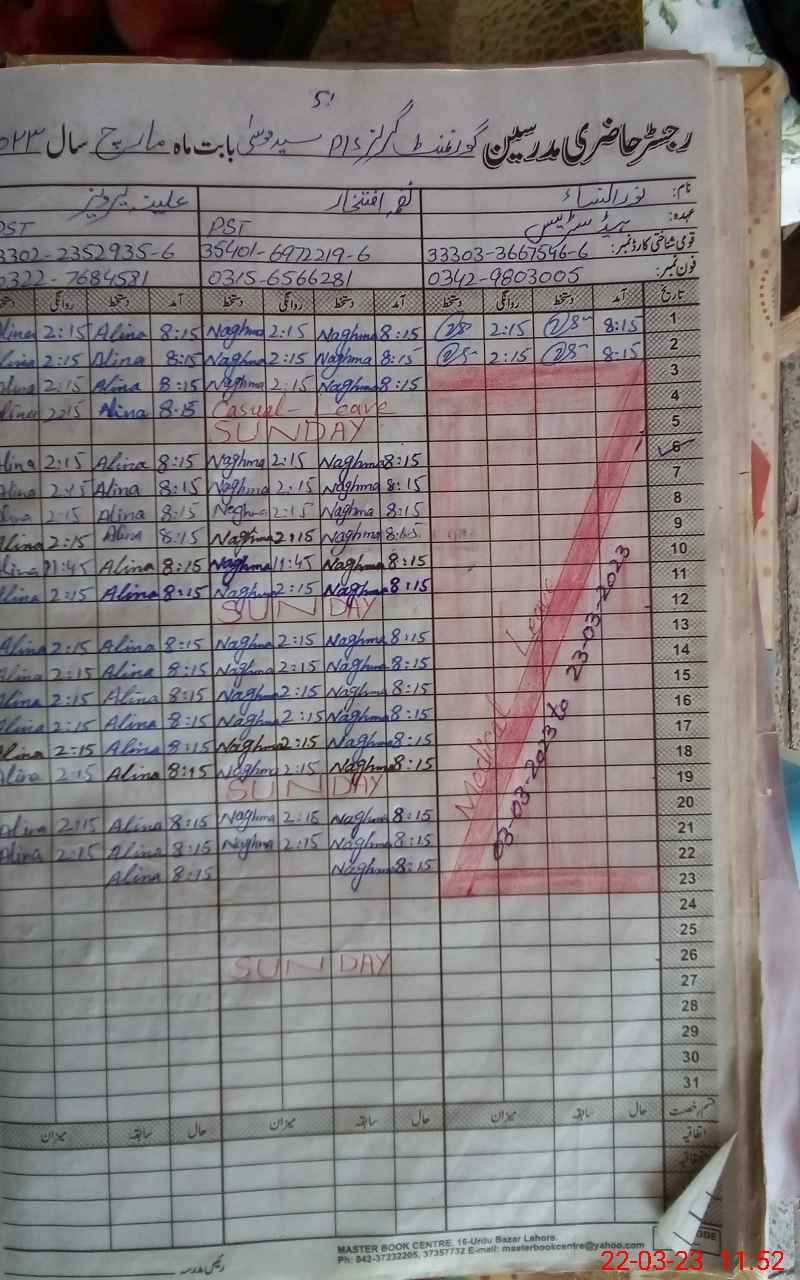 5!
رجسٹر حاضری مدرسین گورنمنٹ گرلز P/S سید موسیٰ بابت ماہ مارچ سال ۲۳
نام: نورالنساء نغمہ افتخار علینہ پرویز
عہدہ: ہیڈ مسٹریس PST PST
قومی شناختی کارڈ نمبر: 33303-3667546-6 35401-6972219-6 3302-2352935-6
فون نمبر: 0342-9803005 0315-6566281 0322-7684581
تاریخ آمد دستخط روانگی دستخط آمد دستخط روانگی دستخط آمد دستخط روانگی دستخط
1 8:15 2:15 8:15 Naghma 2:15 Naghma 8:15 Alina 2:15 Alina
2 8:15 2:15 8:15 Naghma 2:15 Naghma 8:15 Alina 2:15 Alina
3 8:15 Naghma 2:15 Naghma 8:15 Alina 2:15 Alina
4 Casual Leave 8:15 Alina 2:15 Alina
5 SUNDAY
6 8:15 Naghma 2:15 Naghma 8:15 Alina 2:15 Alina
7 8:15 Naghma 2:15 Naghma 8:15 Alina 2:15 Alina
8 8:15 Naghma 2:15 Naghma 8:15 Alina 2:15 Alina
9 8:15 Naghma 2:15 Naghma 8:15 Alina 2:15 Alina
10 8:15 Naghma 11:45 Naghma 8:15 Alina 11:45 Alina
11 8:15 Naghma 2:15 Naghma 8:15 Alina 2:15 Alina
12 SUNDAY
13 8:15 Naghma 2:15 Naghma 8:15 Alina 2:15 Alina
14 8:15 Naghma 2:15 Naghma 8:15 Alina 2:15 Alina
15 8:15 Naghma 2:15 Naghma 8:15 Alina 2:15 Alina
16 8:15 Naghma 2:15 Naghma 8:15 Alina 2:15 Alina
17 8:15 Naghma 2:15 Naghma 8:15 Alina 2:15 Alina
18 8:15 Naghma 2:15 Naghma 8:15 Alina 2:15 Alina
19 SUNDAY
20 8:15 Naghma 2:15 Naghma 8:15 Alina 2:15 Alina
21 8:15 Naghma 2:15 Naghma 8:15 Alina 2:15 Alina
22 8:15 Naghma 8:15 Alina
23
24
25
26 SUNDAY
27
28
29
30
31
Medical Leave
03-03-2023 to 23-03-2023
قسم رخصت حال سابقہ میزان حال سابقہ میزان حال سابقہ میزان
اتفاقیہ
رئیس مدرسہ
MASTER BOOK CENTRE, 16-Urdu Bazar Lahore.
Ph: 042-37232205, 37357732 E-mail: masterbookcentre@yahoo.com
22-03-23 11:52